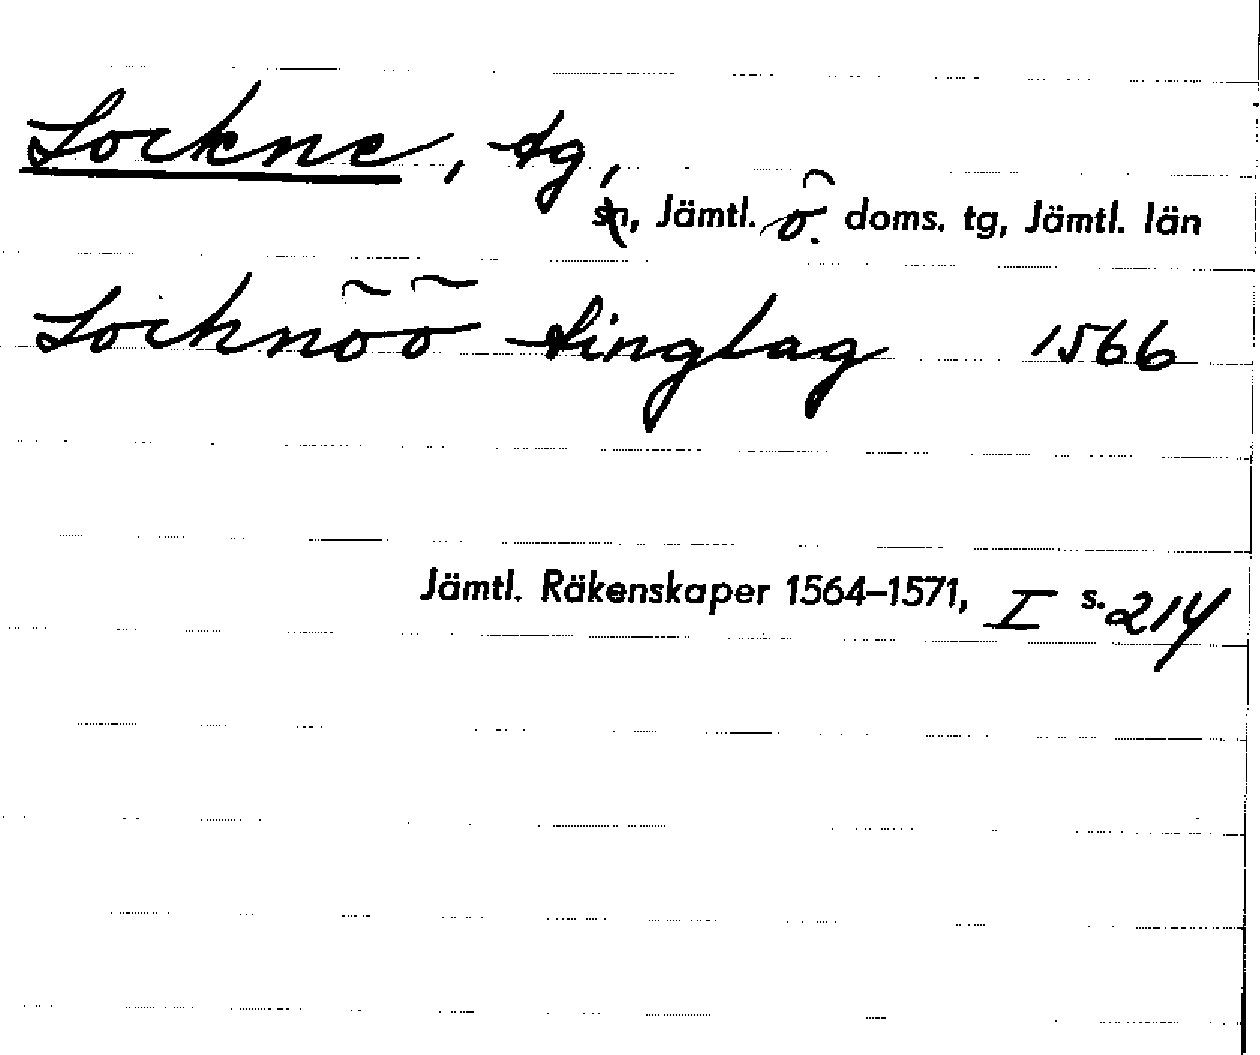 Lockne, tg,
sn, Jämtl. ö. doms. tg, Jämtl. län
Locknöö tinglag 1566
Jämtl. Räkenskaper 1564–1571, I s. 214